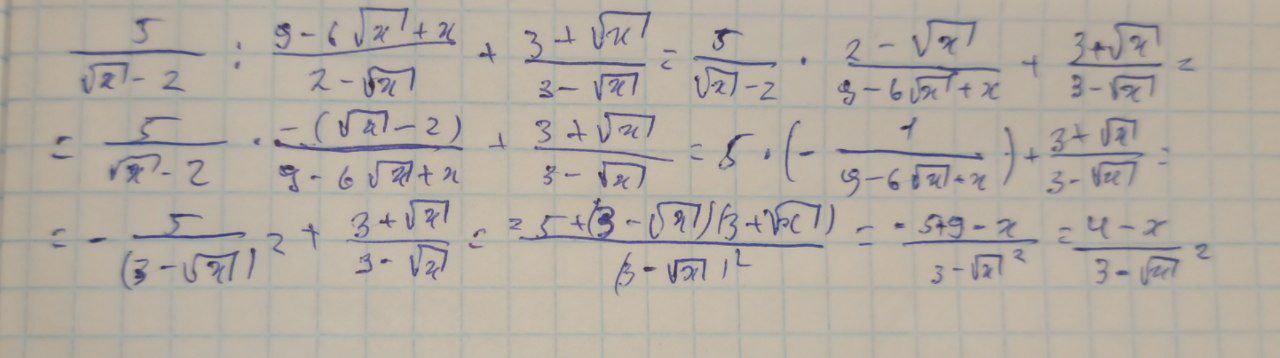 5/(√x - 2) : (9 - 6√x + x)/(2 - √x) + (3 + √x)/(3 - √x) = 5/(√x - 2) · (2 - √x)/(9 - 6√x + x) + (3 + √x)/(3 - √x) =
= 5/(√x - 2) · (-(√x - 2))/(9 - 6√x + x) + (3 + √x)/(3 - √x) = 5 · (- 1/(9 - 6√x + x)) + (3 + √x)/(3 - √x) =
= - 5/(3 - √x)² + (3 + √x)/(3 - √x) = (-5 + (3 - √x)(3 + √x))/(3 - √x)² = (-5 + 9 - x)/(3 - √x)² = (4 - x)/(3 - √x)²